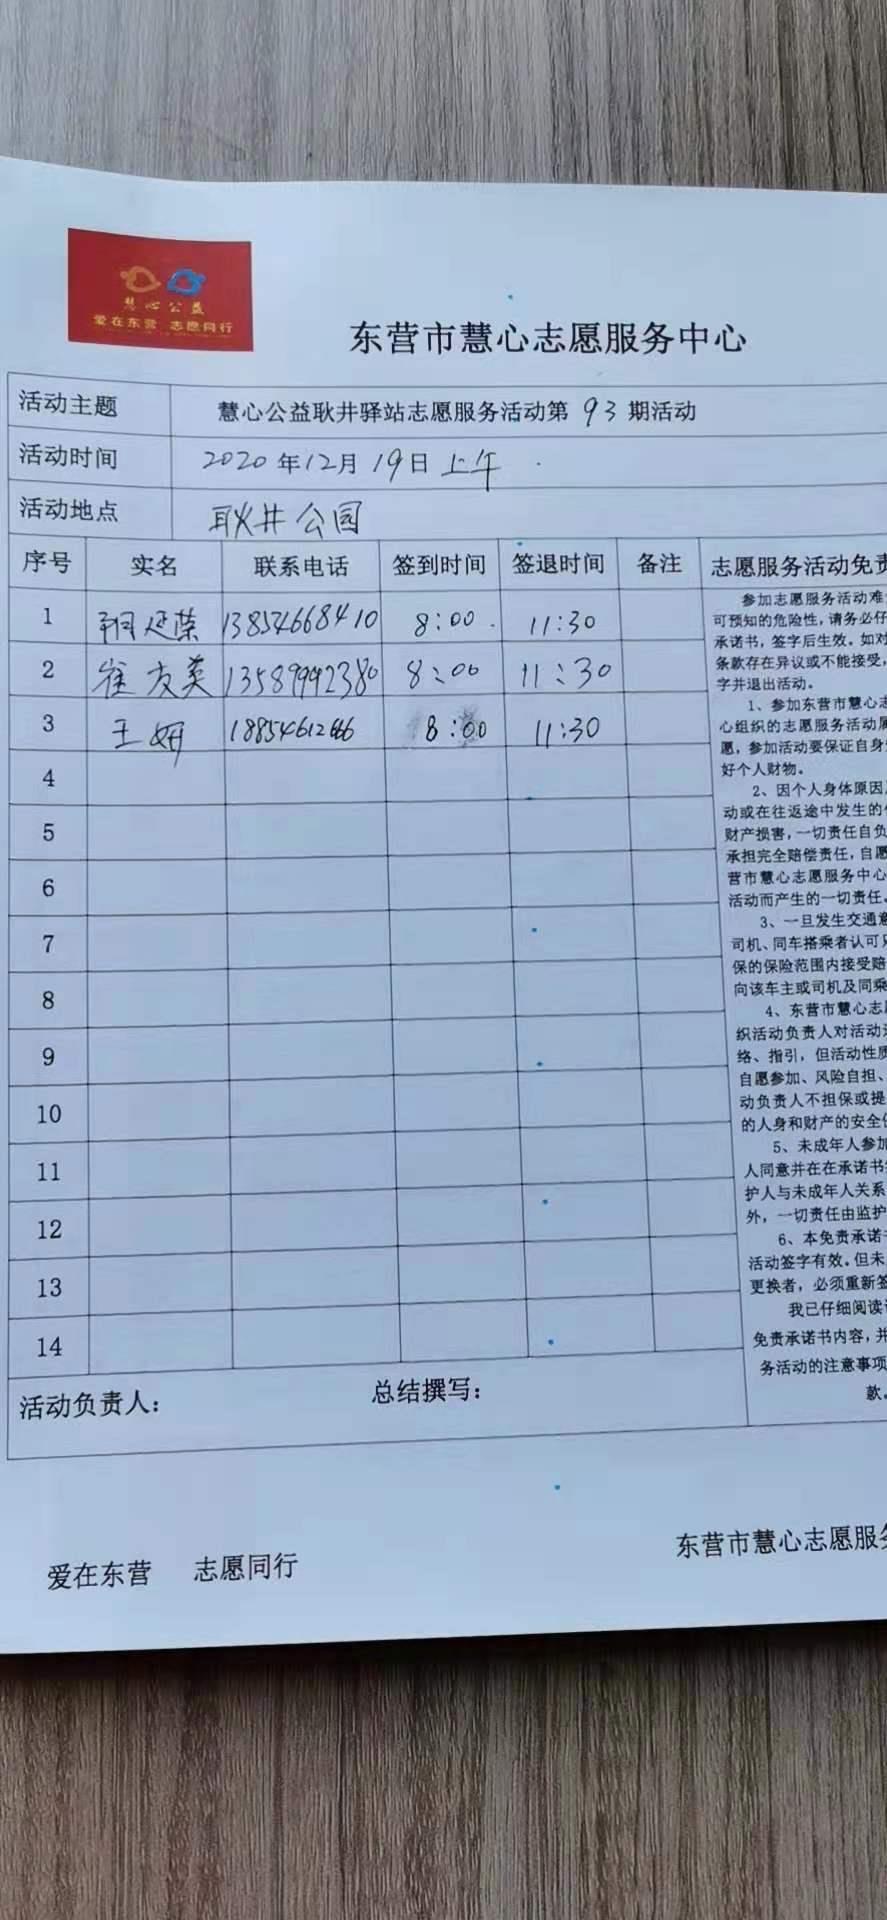 慧心公益
爱在东营 志愿同行
东营市慧心志愿服务中心
活动主题 慧心公益耿井驿站志愿服务活动第 93 期活动
活动时间 2020年12月19日上午
活动地点 耿井公园
序号 实名 联系电话 签到时间 签退时间 备注 志愿服务活动免责
1 13854668410 8:00 11:30
2 崔友英 13589992380 8:00 11:30
3 王妍 8:00 11:30
4
5
6
7
8
9
10
11
12
13
14
参加志愿服务活动难
可预知的危险性,请务必仔
承诺书,签字后生效。如对
条款存在异议或不能接受,
字并退出活动。
1、参加东营市慧心志
心组织的志愿服务活动属
愿,参加活动要保证自身
好个人财物。
2、因个人身体原因
动或在往返途中发生的
财产损害,一切责任自负
承担完全赔偿责任,自愿
营市慧心志愿服务中心
活动而产生的一切责任。
3、一旦发生交通意
司机、同车搭乘者认可
保的保险范围内接受赔
向该车主或司机及同乘
4、东营市慧心志
织活动负责人对活动
络、指引,但活动性质
自愿参加、风险自担、
动负责人不担保或提
的人身和财产的安全
5、未成年人参加
人同意并在在承诺书
护人与未成年人关系
外,一切责任由监护
6、本免责承诺书
活动签字有效。但未
更换者,必须重新签
我已仔细阅读
免责承诺书内容,并
务活动的注意事项
款。
活动负责人: 总结撰写:
爱在东营 志愿同行 东营市慧心志愿服务